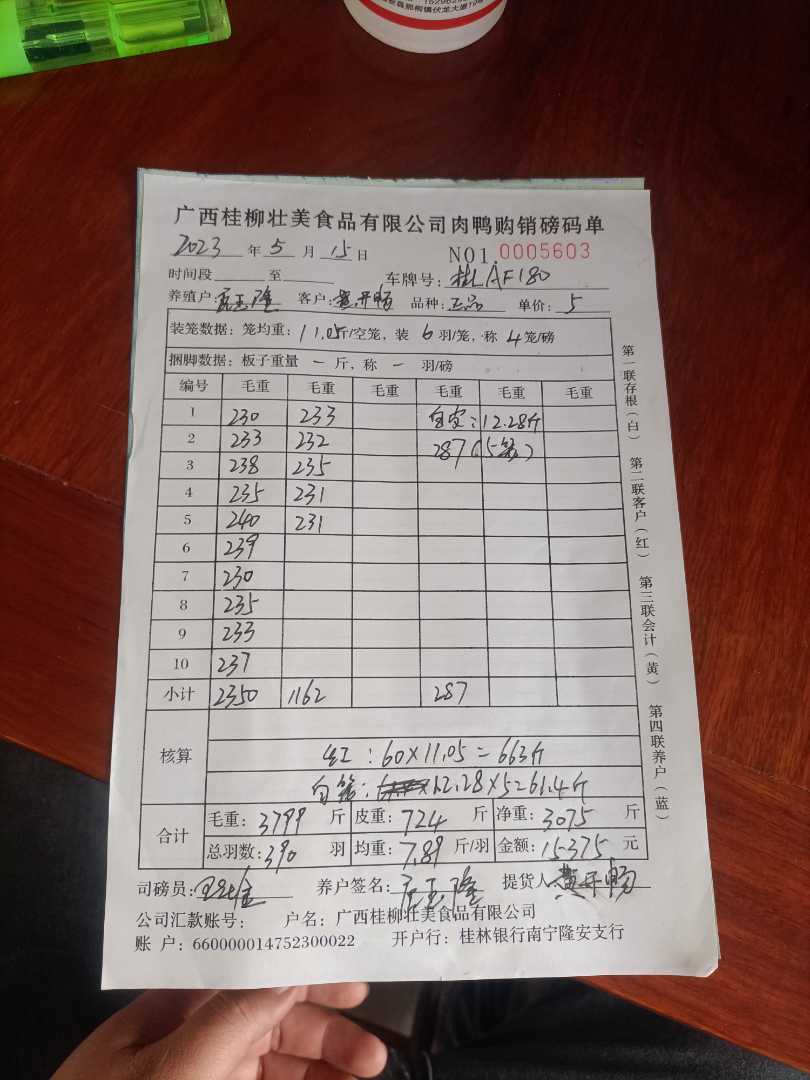 县那桐镇伏龙大道198
广西桂柳壮美食品有限公司肉鸭购销磅码单
2023 年 5 月 15 日 NO1.0005603
时间段 至 车牌号: 桂AF180
养殖户: 隆 客户: 黄开畅 品种: 正品 单价: 5
装笼数据: 笼均重: 11.05斤/空笼, 装 6 羽/笼, 称 4 笼/磅
捆脚数据: 板子重量 一 斤, 称 一 羽/磅
编号 毛重 毛重 毛重 毛重 毛重 毛重
1 230 233 白笼: 12.28斤
2 233 232 287 (5笼)
3 238 235
4 235 231
5 240 231
6 239
7 230
8 235
9 233
10 237
小计 2350 1162 287
核算
红: 60×11.05=663斤
白笼: 12.28×5=61.4斤
合计
毛重: 3799 斤 皮重: 724 斤 净重: 3075 斤
总羽数: 390 羽 均重: 7.89 斤/羽 金额: 15375 元
司磅员: 养户签名: 隆 提货人 黄开畅
公司汇款账号: 户名: 广西桂柳壮美食品有限公司
账 户: 660000014752300022 开户行: 桂林银行南宁隆安支行
第一联存根(白) 第二联客户(红) 第三联会计(黄) 第四联养户(蓝)